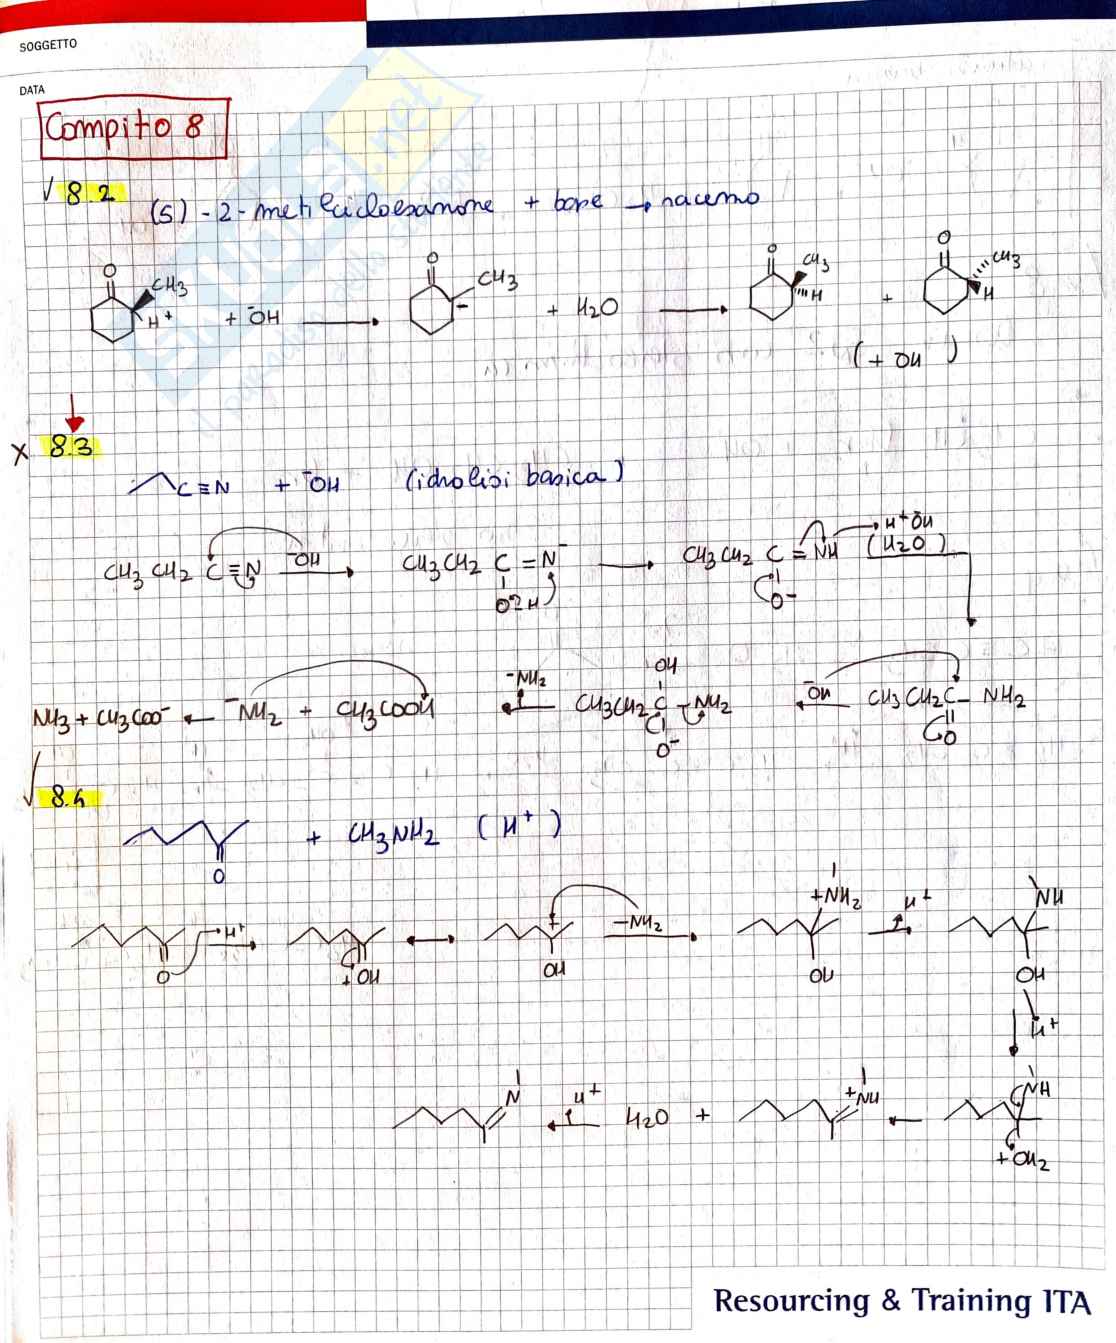 SOGGETTO
DATA
Compito 8
√ 8.2
(S) - 2 - metilcicloesanone + base → racemo
O CH3 H+ + ⁻OH → O CH3 - + H2O → O CH3 H + O CH3 H
(+ OH⁻)
X 8.3
C≡N + ⁻OH (idrolisi basica)
CH3 CH2 C≡N ⁻OH → CH3 CH2 C=N⁻ O H → CH3 CH2 C=NH O⁻ H+ ⁻OH (H2O)
NH3 + CH3COO⁻ ← ⁻NH2 + CH3COOH ← -NH2 CH3CH2 C-NH2 OH O⁻ ← ⁻OH CH3 CH2 C- NH2 O
√ 8.4
O + CH3NH2 (H+)
O H+ → +OH ↔ + OH -NH2 → +NH2 OH H+ → NH OH
H+
N ← H+ H2O + +NH ← NH +OH2
Resourcing & Training ITA